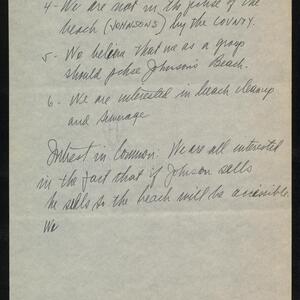 4 - We are not in the pulse of the
beach (JOHNSONS) by the COUNTY.
5 - We believe that we as a group
should pulse Johnson's Beach.
6 - We are interested in beach cleanup
and sewerage
Interest in Common. We are all interested
in the fact that if Johnson sells
he sells so the beach will be accessible.
We